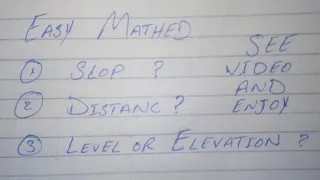 EASY MATHED
① SLOP ?
② DISTANC ?
③ LEVEL OR ELEVATION ?
SEE
VIDEO
AND
ENJOY